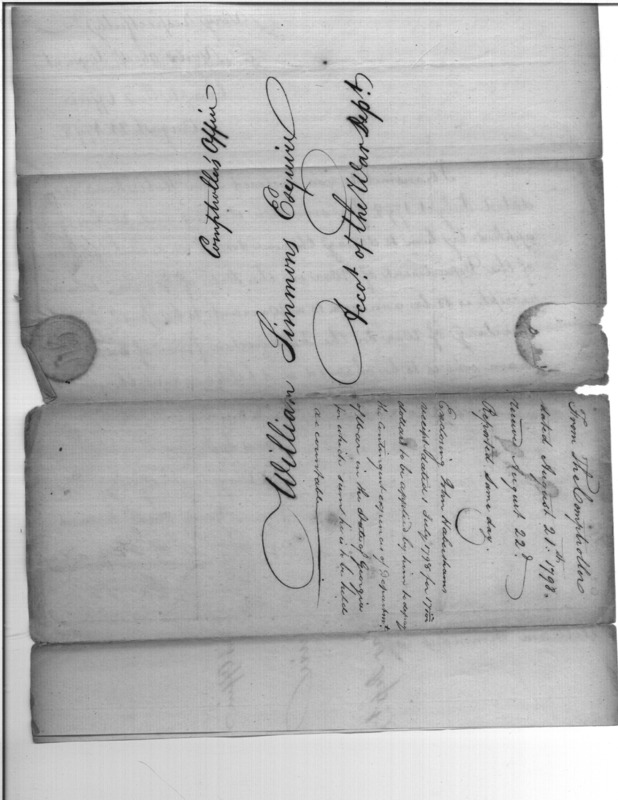 Comptroller's Office
William Simmons Esquire
Accot. of the War Dept.
From The Comptroller
dated August 21.th 1798.
received August 22d.
Reported same day.
Enclosing John Habershams
receipt dated 1 July 1798 for
dollars to be applied by him to defray
the Contingent expences of Department
of War in the State of Georgia
for which sum he is to be held
accountable